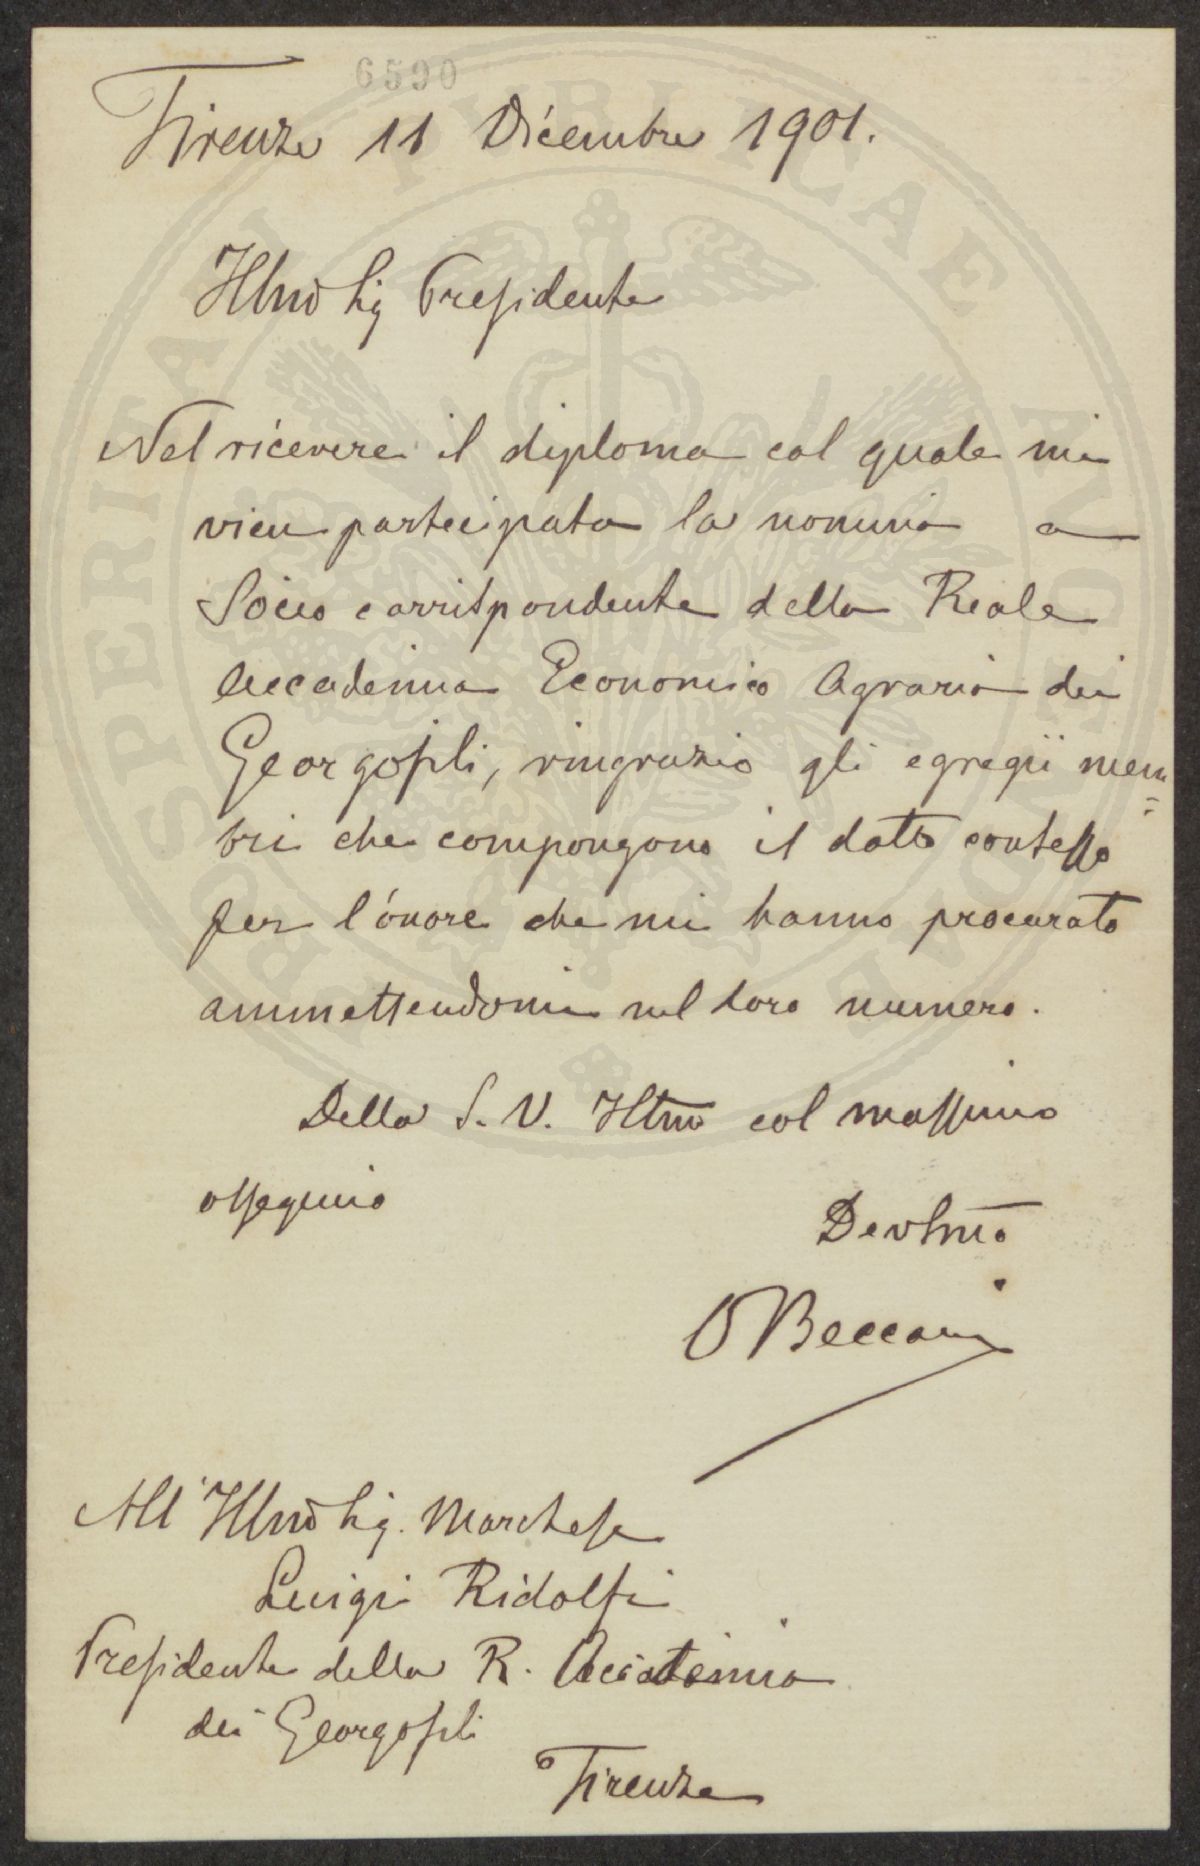 6590
Firenze 11 Dicembre 1901.
Illmo Sig Presidente
Nel ricevere il diploma col quale mi
vien partecipata la nomina a
Socio corrispondente della Reale
Accademia Economico Agraria dei
Georgofili, ringrazio gli egregii mem
=
bri che compongono il dotto contesso
per l'onore che mi hanno procurato
ammettendomi nel loro numero.
Della S. V. Illma col massimo
ossequio
Devlmo
O Beccari
All' Illmo Sig. Marchese
Luigi Ridolfi
Presidente della R. Accademia
dei Georgofili
Firenze
PROSPERITATI PUBLICAE AUGENDAE